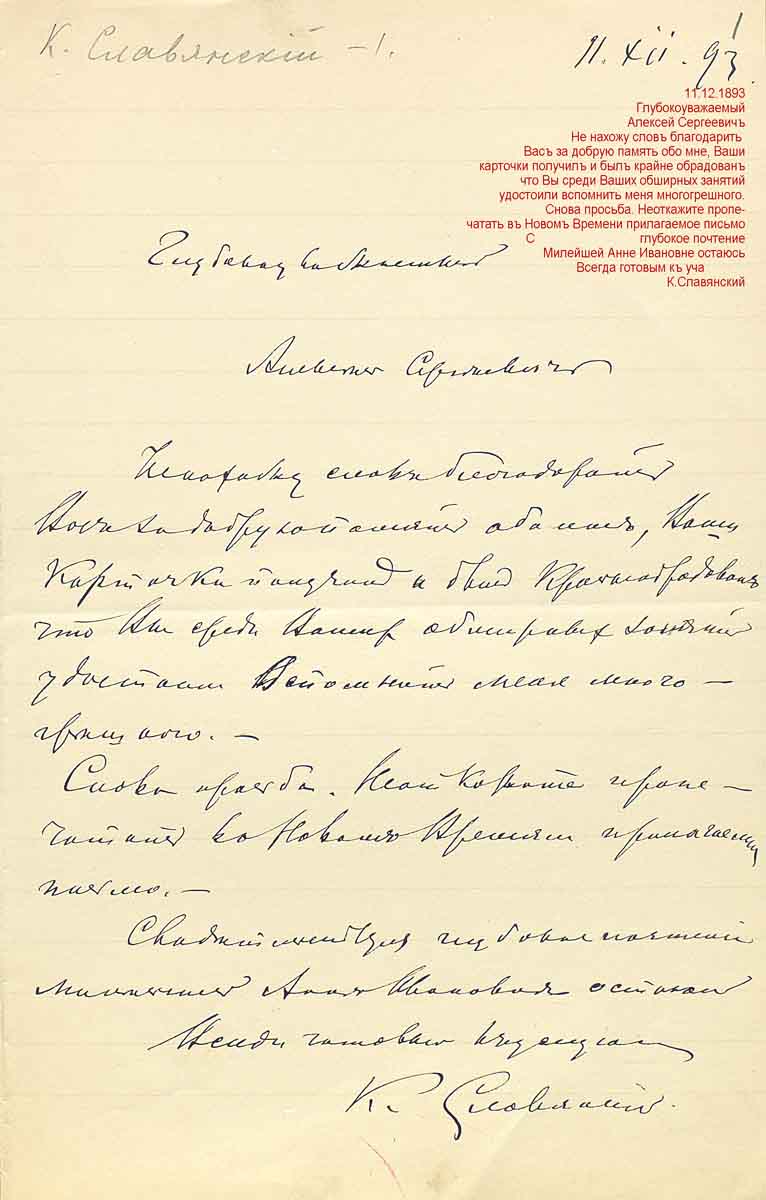 К. Славянскій – 1.
1
11. XII. 93
11.12.1893
Глубокоуважаемый
Алексей Сергеевичъ
Не нахожу словъ благодарить
Васъ за добрую память обо мне, Ваши
карточки получилъ и былъ крайне обрадованъ
что Вы среди Ваших обширных занятий
удостоили вспомнить меня многогрешного.
Снова просьба. Неоткажите пропе-
чатать въ Новомъ Времени прилагаемое письмо
С глубокое почтение
Милейшей Анне Ивановне остаюсь
Всегда готовым къ уча
К.Славянский
Глубокоуважаемый
Алексей Сергеевичъ
Не нахожу словъ благодарить
Васъ за добрую память обо мне, Ваши
карточки получилъ и былъ крайне обрадованъ
что Вы среди Ваших обширных занятий
удостоили вспомнить меня много –
грешного. –
Снова просьба. Неоткажите пропе –
чатать въ Новомъ Времени прилагаемое
письмо. –
глубокое почтение
Милейшей Анне Ивановне остаюсь
Всегда готовым
К. Славянский.